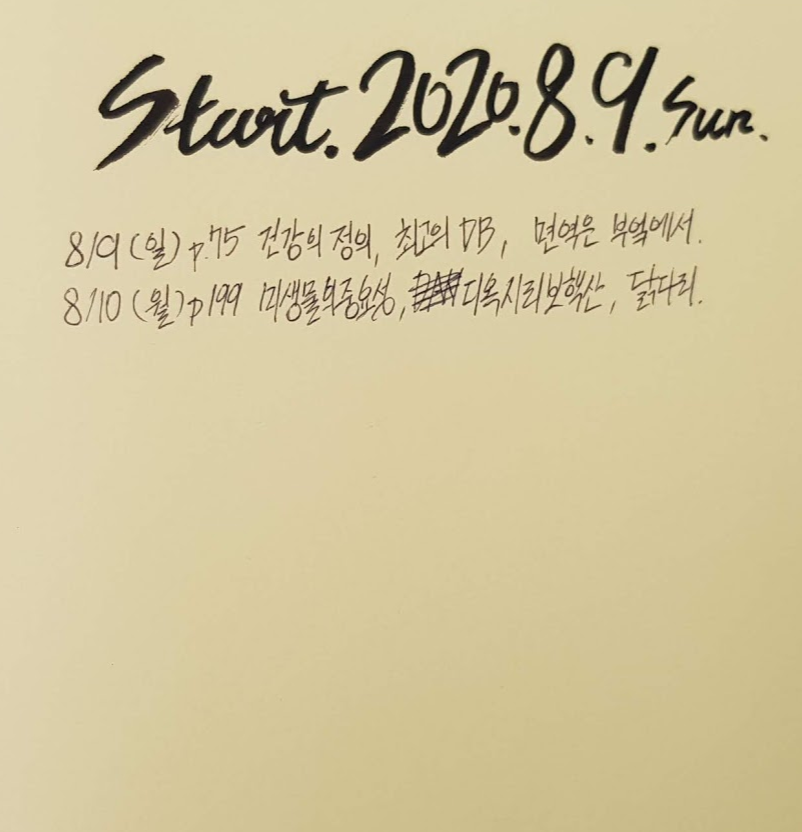 Start. 2020. 8. 9. Sun.
8/9 (일) p.75 건강의 정의, 최고의 DB, 면역은 부엌에서.
8/10 (월) p199 미생물의중요성, 디옥시리보핵산, 닭다리.